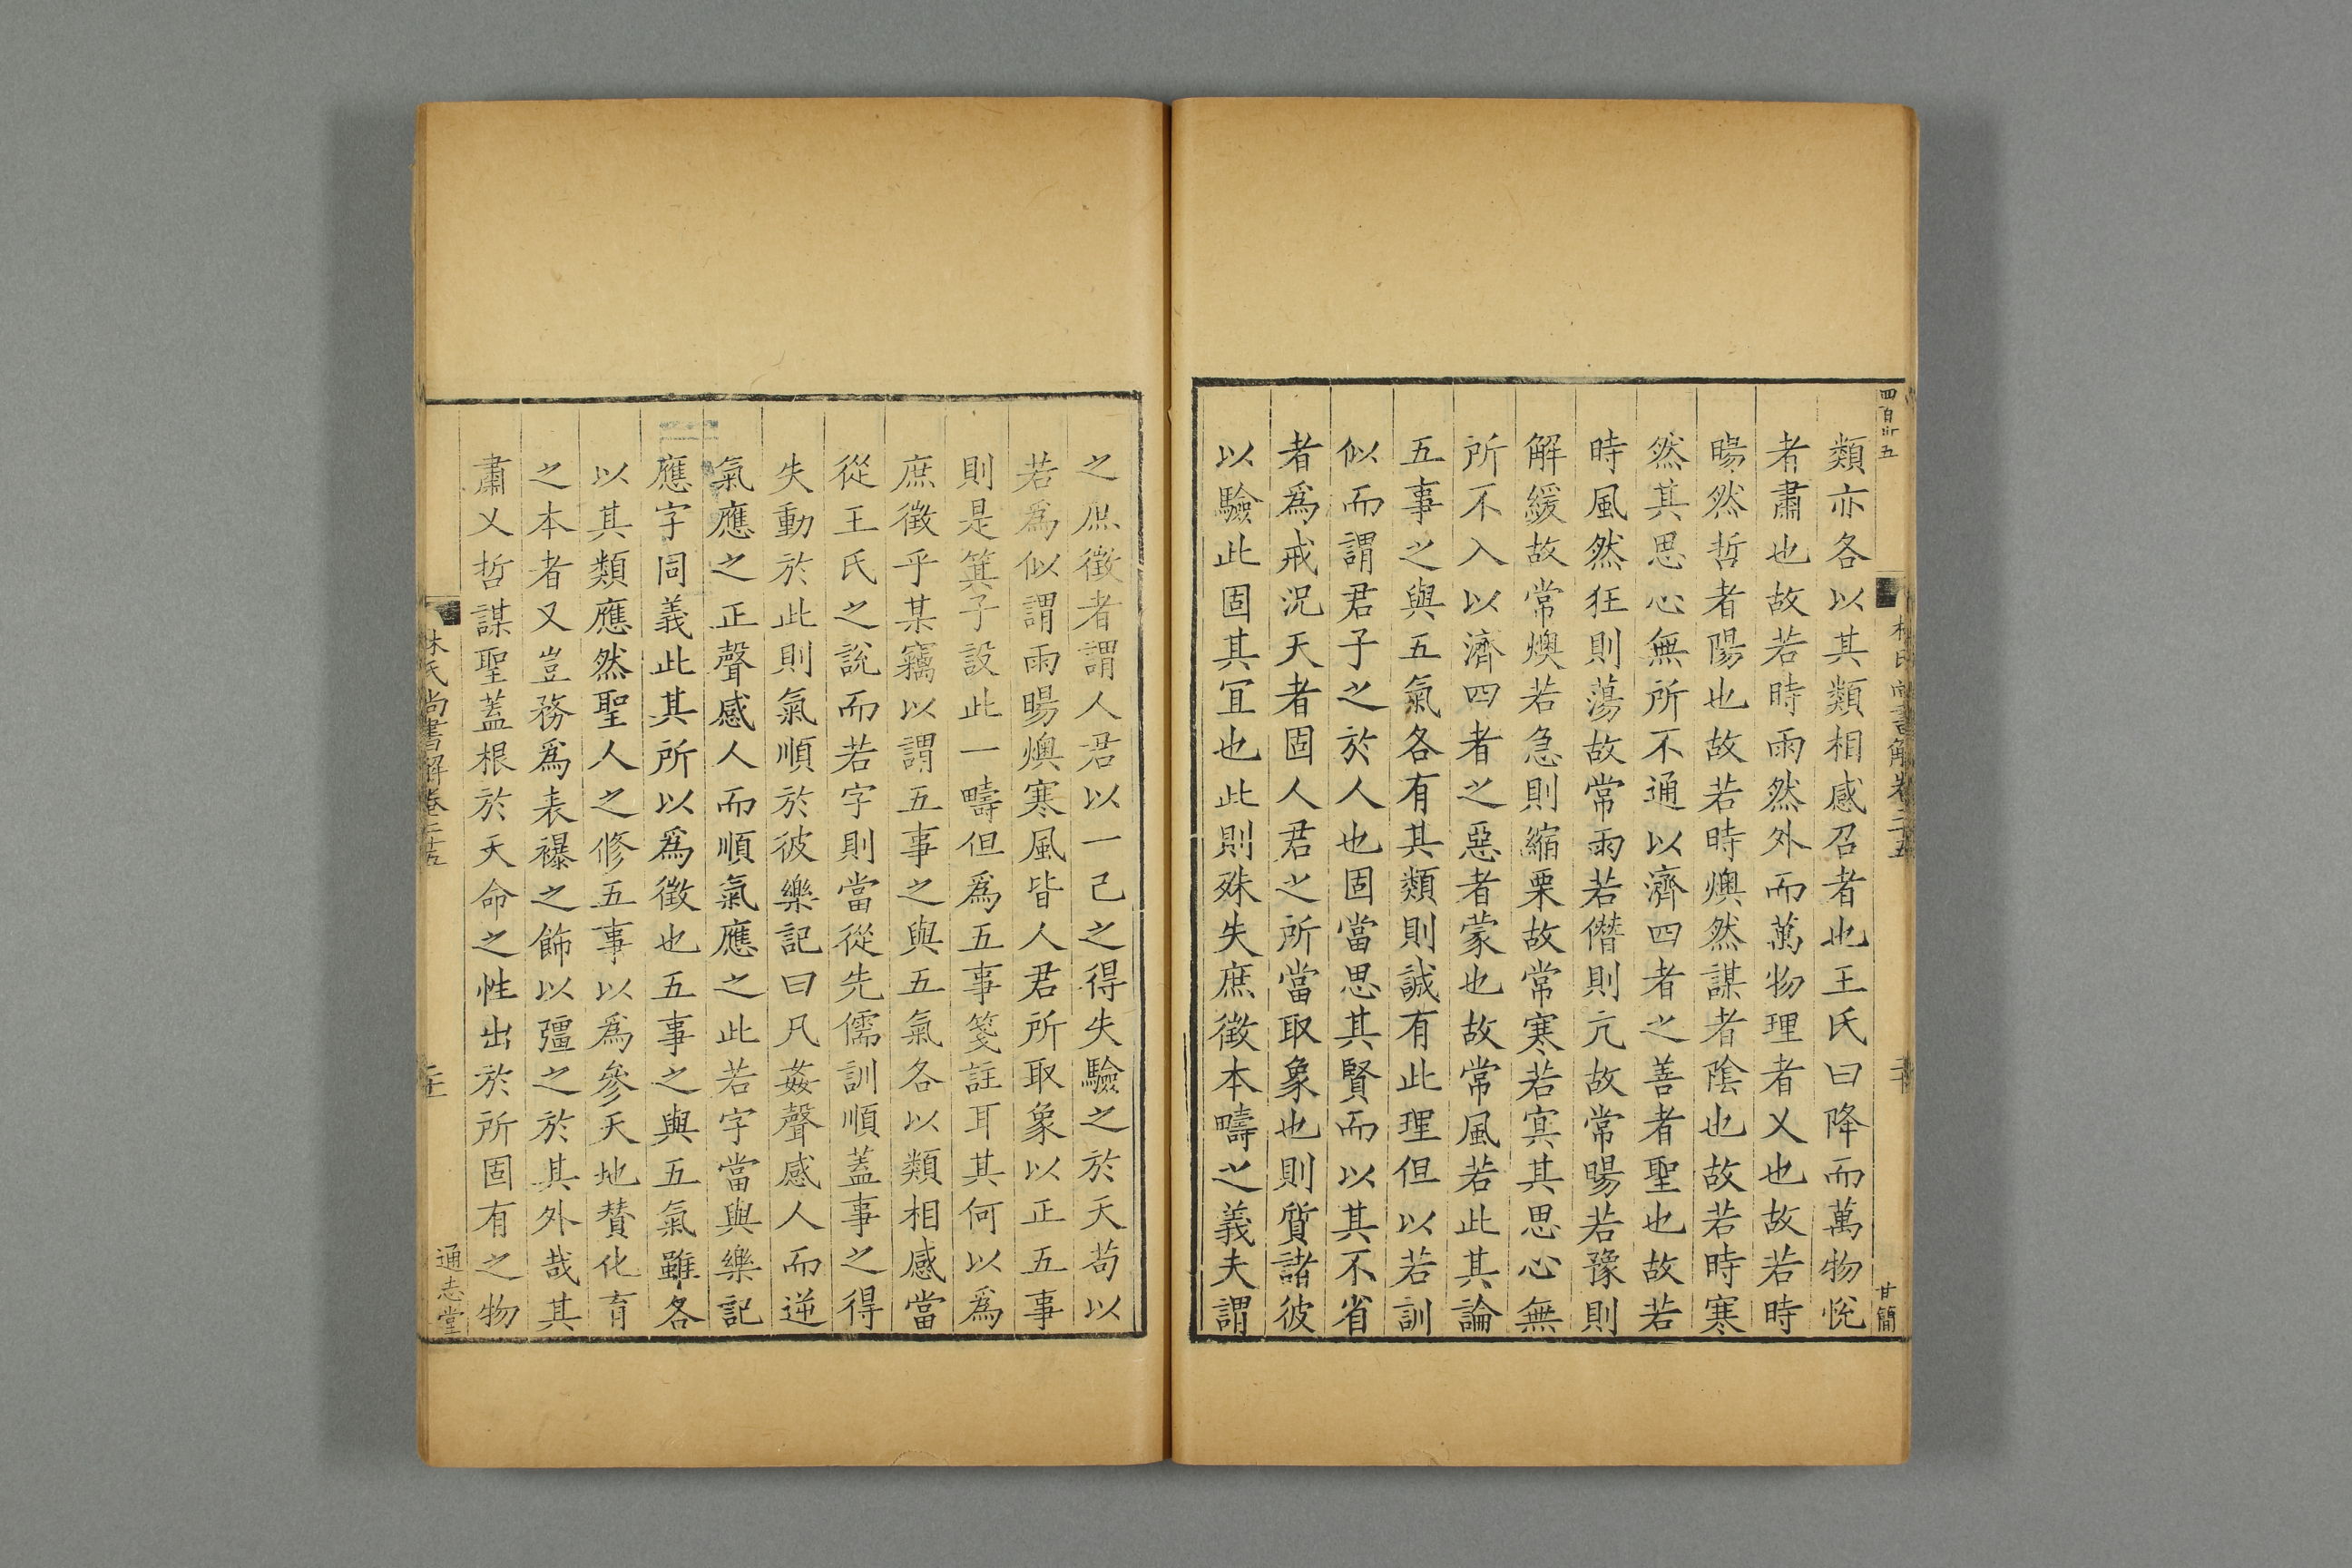 四百卅五
林氏尚書解卷二十五
甘簡
類亦各以其類相感召者也王氏曰降而萬物悅
者肅也故若時雨然外而萬物理者乂也故若時
暘然哲者陽也故若時燠然謀者陰也故若時寒
然其思心無所不通以濟四者之善者聖也故若
時風然狂則蕩故常雨若僭則亢故常暘若豫則
解緩故常燠若急則縮栗故常寒若㝠其思心無
所不入以濟四者之惡者蒙也故常風若此其論
五事之與五氣各有其類則誠有此理但以若訓
似而謂君子之於人也固當思其賢而以其不省
者爲戒况天者固人君之所當取象也則質諸彼
以驗此固其宜也此則殊失庶徵本疇之義夫謂
之庶徵者謂人君以一己之得失驗之於天苟以
若爲似謂雨暘燠寒風皆人君所取象以正五事
則是箕子設此一疇但爲五事箋註耳其何以爲
庶徵乎某竊以謂五事之與五氣各以類相感當
從王氏之說而若字則當從先儒訓順蓋事之得
失動於此則氣順於彼樂記曰凡姦聲感人而逆
氣應之正聲感人而順氣應之此若字當與樂記
應字同義此其所以爲徵也五事之與五氣雖各
以其類應然聖人之修五事以爲參天地賛化育
之本者又豈務爲表襮之飾以彊之於其外哉其
肅乂哲謀聖蓋根於天命之性出於所固有之物
林氏尚書解卷二十五
通志堂